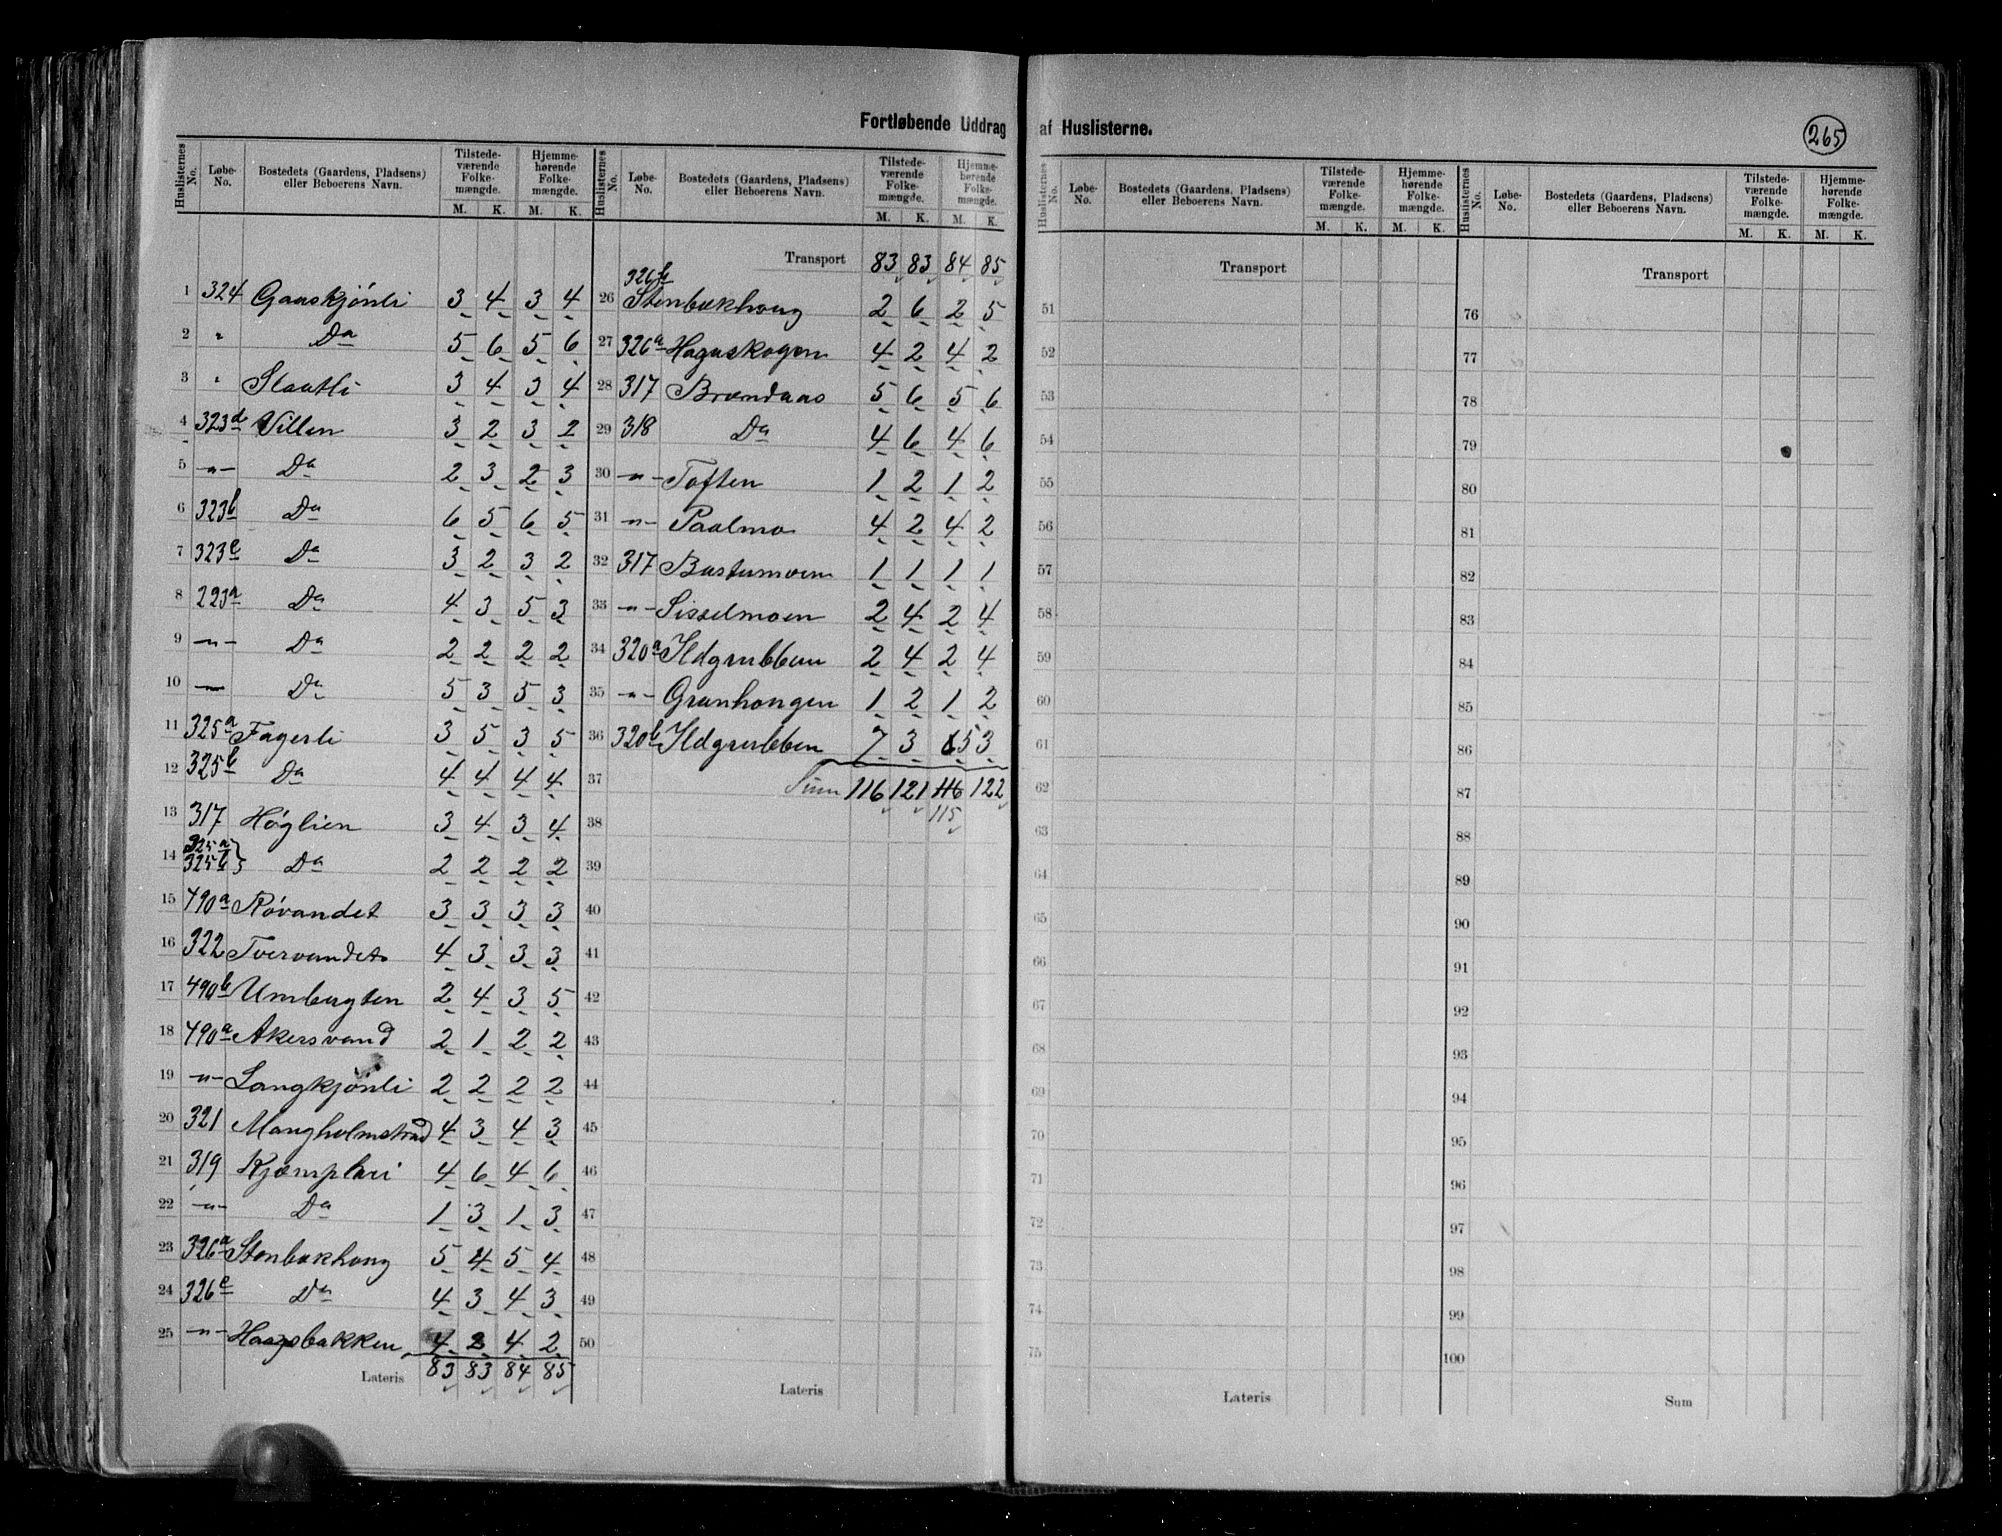 Fortløbende Uddrag af Huslisterne.
265
Huslisternes No. Løbe-No. Bostedets (Gaardens, Pladsens) eller Beboerens Navn. Tilstedeværende Folkemængde. M. K. Hjemmehørende Folkemængde. M. K.
1 324 Gaaskjönli 3 4 3 4
2 " Da 5 6 5 6
3 " Slaatli 3 4 3 4
4 323d Villen 3 2 3 2
5 -"- Da 2 3 2 3
6 323b Da 6 5 6 5
7 323c Da 3 2 3 2
8 223a Da 4 3 5 3
9 -"- Da 2 2 2 2
10 -"- Da 5 3 5 3
11 325a Fagerli 3 5 3 5
12 325b Da 4 4 4 4
13 317 Høglien 3 4 3 4
14 325a 325b } Da 2 2 2 2
15 490a Røvandet 3 3 3 3
16 322 Tvervandets 4 3 3 3
17 490b Umbugten 2 4 3 5
18 490a Akersvand 2 1 2 2
19 -"- Langkjönli 2 2 2 2
20 321 Mangholmstrad 4 3 4 3
21 319 Kjæmphei 4 6 4 6
22 -"- Da 1 3 1 3
23 326a Stenbækhoug 5 4 5 4
24 326c Da 4 3 4 3
25 -"- Haugsbakken 4 2 4 2
Lateris 83 83 84 85
Huslisternes No. Løbe-No. Bostedets (Gaardens, Pladsens) eller Beboerens Navn. Tilstedeværende Folkemængde. M. K. Hjemmehørende Folkemængde. M. K.
Transport 83 83 84 85
26 326b Stenbækhoug 2 6 2 5
27 326a Hagaskogen 4 2 4 2
28 317 Brændaas 5 6 5 6
29 318 Da 4 6 4 6
30 -"- Toften 1 2 1 2
31 -"- Paalmo 4 2 4 2
32 317 Bustumoen 1 1 1 1
33 -"- Sisselmoen 2 4 2 4
34 320a Ildgrubben 2 4 2 4
35 -"- Granhougen 1 2 1 2
36 320b Ildgrubben 7 3 5 3
37 Sum 116 121 116 122
38 115
39
40
41
42
43
44
45
46
47
48
49
50
Lateris
Huslisternes No. Løbe-No. Bostedets (Gaardens, Pladsens) eller Beboerens Navn. Tilstedeværende Folkemængde. M. K. Hjemmehørende Folkemængde. M. K.
Transport
51
52
53
54
55
56
57
58
59
60
61
62
63
64
65
66
67
68
69
70
71
72
73
74
75
Lateris
Huslisternes No. Løbe-No. Bostedets (Gaardens, Pladsens) eller Beboerens Navn. Tilstedeværende Folkemængde. M. K. Hjemmehørende Folkemængde. M. K.
Transport
76
77
78
79
80
81
82
83
84
85
86
87
88
89
90
91
92
93
94
95
96
97
98
99
100
Sum